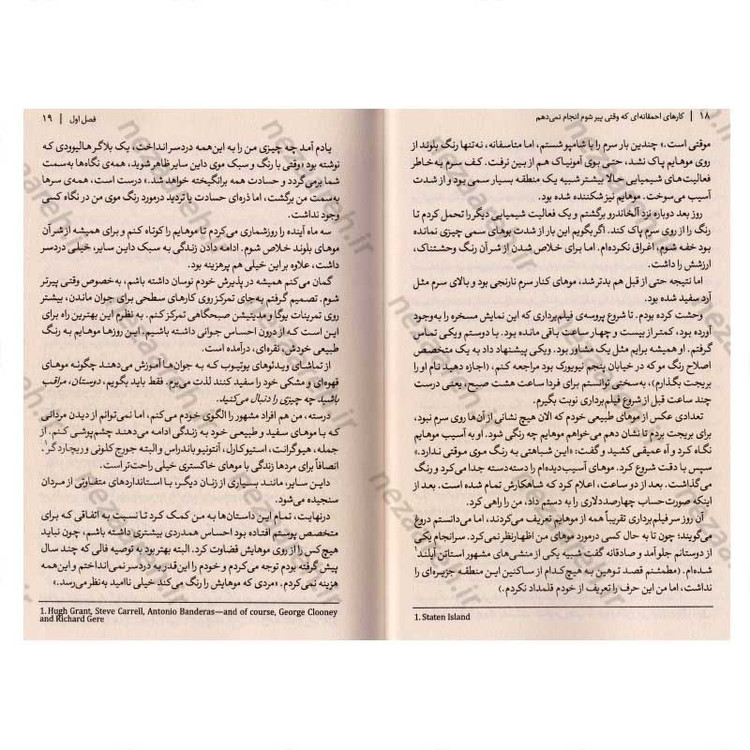 ۱۸ | کارهای احمقانه‌ای که وقتی پیر شوم انجام نمی‌دهم
موقتی است.» چندین بار سرم را با شامپو شستم، اما متاسفانه، نه‌تنها رنگ بلوند از
روی موهایم پاک نشد، حتی بوی آمونیاک هم از بین نرفت. کف سرم به خاطر
فعالیت‌های شیمیایی حالا بیشتر شبیه یک منطقه بسیار سمی بود و از شدت
آسیب می‌سوخت. موهایم نیز شکننده شده بود.
روز بعد دوباره نزد آلخاندرو برگشتم و یک فعالیت شیمیایی دیگر را تحمل کردم تا
رنگ را از روی سرم پاک کند. اگر بگویم این بار از شدت بوهای سمی چیزی نمانده
بود خفه شوم، اغراق نکرده‌ام. اما برای خلاص شدن از شر آن رنگ وحشتناک،
ارزشش را داشت.
اما نتیجه حتی از قبل هم بدتر شد، موهای کنار سرم نارنجی بود و بالای سرم مثل
آرد سفید شده بود.
وحشت کرده بودم. تا شروع پروسه‌ی فیلم‌برداری که این نمایش مسخره را به‌وجود
آورده بود، کمتر از بیست و چهار ساعت باقی مانده بود. با دوستم ویکی تماس
گرفتم. او همیشه برایم مثل یک مشاور بود. ویکی پیشنهاد داد به یک متخصص
اصلاح رنگ مو که در خیابان پنجم نیویورک بود مراجعه کنم، (اجازه دهید نام او را
بریجت بگذارم)، به‌سختی توانستم برای فردا ساعت هشت صبح، یعنی درست
چند ساعت قبل از شروع فیلم‌برداری نوبت بگیرم.
تعدادی عکس از موهای طبیعی خودم که الان هیچ نشانی از آن‌ها روی سرم نبود،
برای بریجت بردم تا نشان دهم می‌خواهم موهایم چه رنگی شود. او به آسیب موهایم
نگاه کرد و آه عمیقی کشید و گفت: «این شباهتی به رنگ موی موقتی ندارد.»
سپس با دقت شروع کرد. موهای آسیب‌دیده‌ام را دسته‌دسته جدا می‌کرد و رنگ
می‌گذاشت. بعد از دو ساعت، اعلام کرد که شاهکارش تمام شده است. بعد از
اینکه صورت‌حساب چهارصد دلاری را به دستم داد، من را راهی کرد.
آن روز سر فیلم‌برداری تقریباً همه از موهایم تعریف می‌کردند، اما می‌دانستم دروغ
می‌گویند؛ چون تا به حال کسی درمورد موهای من اظهارنظر نمی‌کرد. سرانجام یکی
از دوستانم جلو آمد و صادقانه گفت شبیه یکی از منشی‌های مشهور استاتن آیلند۱
شده‌ام. (مطمئنم قصد توهین به هیچ‌کدام از ساکنین این منطقه جزیره‌ای را
نداشت، اما من این حرف را تعریف از خودم قلمداد نکردم.)
1. Staten Island
فصل اول | ۱۹
یادم آمد چه چیزی من را به این‌همه دردسر انداخت، یک بلاگر هالیوودی که
نوشته بود: «وقتی با رنگ و سبک موی داین سایر ظاهر شوید، همه‌ی نگاه‌ها به‌سمت
شما برمی‌گردد و حسادت همه برانگیخته خواهد شد.» درست است، همه‌ی سرها
به‌سمت من برگشت، اما ذره‌ای حسادت یا تردید درمورد رنگ موی من در نگاه کسی
وجود نداشت.
سه ماه آینده را روزشماری می‌کردم تا موهایم را کوتاه کنم و برای همیشه از شر آن
موهای بلوند خلاص شوم. ادامه دادن زندگی به سبک داین سایر، خیلی دردسر
داشت، علاوه بر این خیلی هم پرهزینه بود.
گمان می‌کنم همیشه در پذیرش خودم نوسان داشته باشم، به‌خصوص وقتی پیرتر
شوم. تصمیم گرفتم به‌جای تمرکز روی کارهای سطحی برای جوان ماندن، بیشتر
روی تمرینات یوگا و مدیتیشن صبحگاهی تمرکز کنم. به نظرم این بهترین راه برای
این است که از درون احساس جوانی داشته باشیم. این روزها موهایم به رنگ
طبیعی خودش، نقره‌ای، درآمده است.
از تماشای ویدئوهای یوتیوب که به جوان‌ها آموزش می‌دهند چگونه موهای
قهوه‌ای و مشکی خود را سفید کنند لذت می‌برم. فقط باید بگویم، دوستان، مراقب
باشید چه چیزی را دنبال می‌کنید.
درسته، من هم افراد مشهور را الگوی خودم می‌کنم، اما نمی‌توانم از دیدن مردانی
که با موهای سفید و طبیعی خود به زندگی ادامه می‌دهند چشم‌پوشی کنم. از
جمله، هیوگرانت، استیو کارل، آنتونیو باندراس و البته جورج کلونی و ریچارد گر۱.
انصافاً برای مردها زندگی با موهای خاکستری خیلی راحت‌تر است.
داین سایر، مانند بسیاری از زنان دیگر، با استانداردهای متفاوتی از مردان
سنجیده می‌شود.
درنهایت، تمام این داستان‌ها به من کمک کرد تا نسبت به اتفاقی که برای
متخصص پوستم افتاده بود احساس همدردی بیشتری داشته باشم، چون نباید
هیچ کس را از روی موهایش قضاوت کرد. البته بهتر بود به توصیه فالی که چند سال
پیش گرفته بودم توجه می‌کردم و خودم را این‌قدر به دردسر نمی‌انداختم و این‌همه
هزینه نمی‌کردم. «مردی که موهایش را رنگ می‌کند خیلی ناامید به‌نظر می‌رسد.»
1. Hugh Grant, Steve Carrell, Antonio Banderas—and of course, George Clooney
and Richard Gere
nezareh.ir